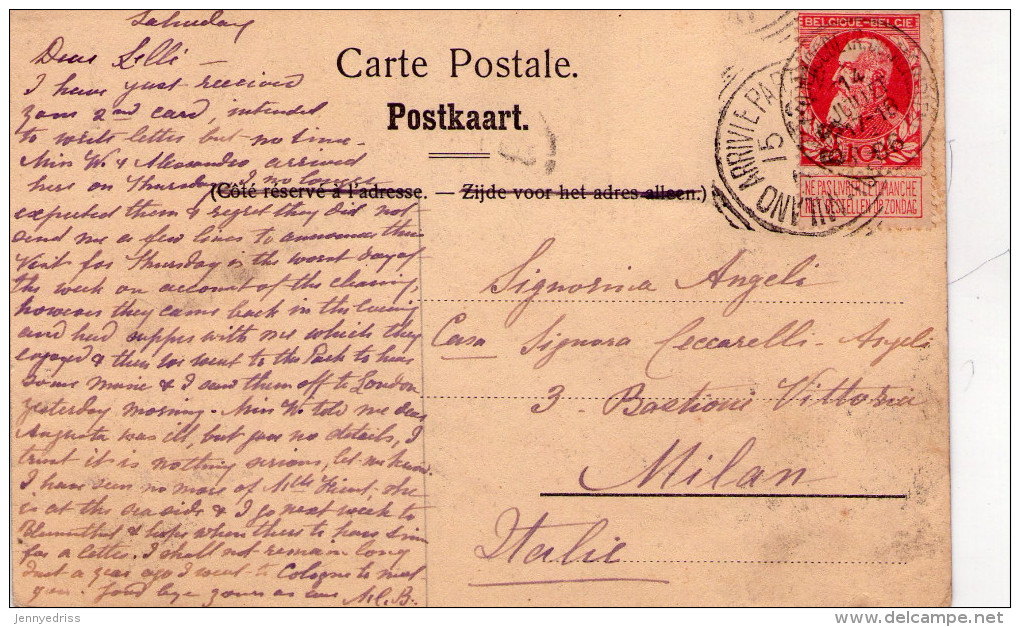 Saturday
Dear Lelli —
I have just received
your 2nd card, intended
to write letter but no time.
Miss W. & Alessandro arrived
here on Thursday, I no longer
expected them & regret they did not
send me a few lines to announce their
visit for Thursday is the worst day of
the week on account of the closing,
however they came back in the evening
and had supper with me which they
enjoyed & then we went to the Park to hear
some music & I saw them off to London
yesterday morning. Miss W. told me dear
Augusta was ill, but gave no details, I
trust it is nothing serious, let me know.
I have seen no more of Mlle she
is at the seaside & I go next week to
& hope when there to have time
for a letter. I shall not remain long
Just a year ago I went to Cologne to meet
you. Good bye yours as ever M.C.B.
Carte Postale.
Postkaart.
(Côté réservé à l'adresse. — Zijde voor het adres alleen.)
BELGIQUE-BELGIE
10
NE PAS LIVRER LE DIMANCHE
NIET BESTELLEN OP ZONDAG
MILANO ARRIVI E PAR
15
14
Signorina Angeli
Casa Signora Ceccarelli-Angeli
3 - Bastioni Vittoria
Milan
Italie
jennyedriss
delcampe.net